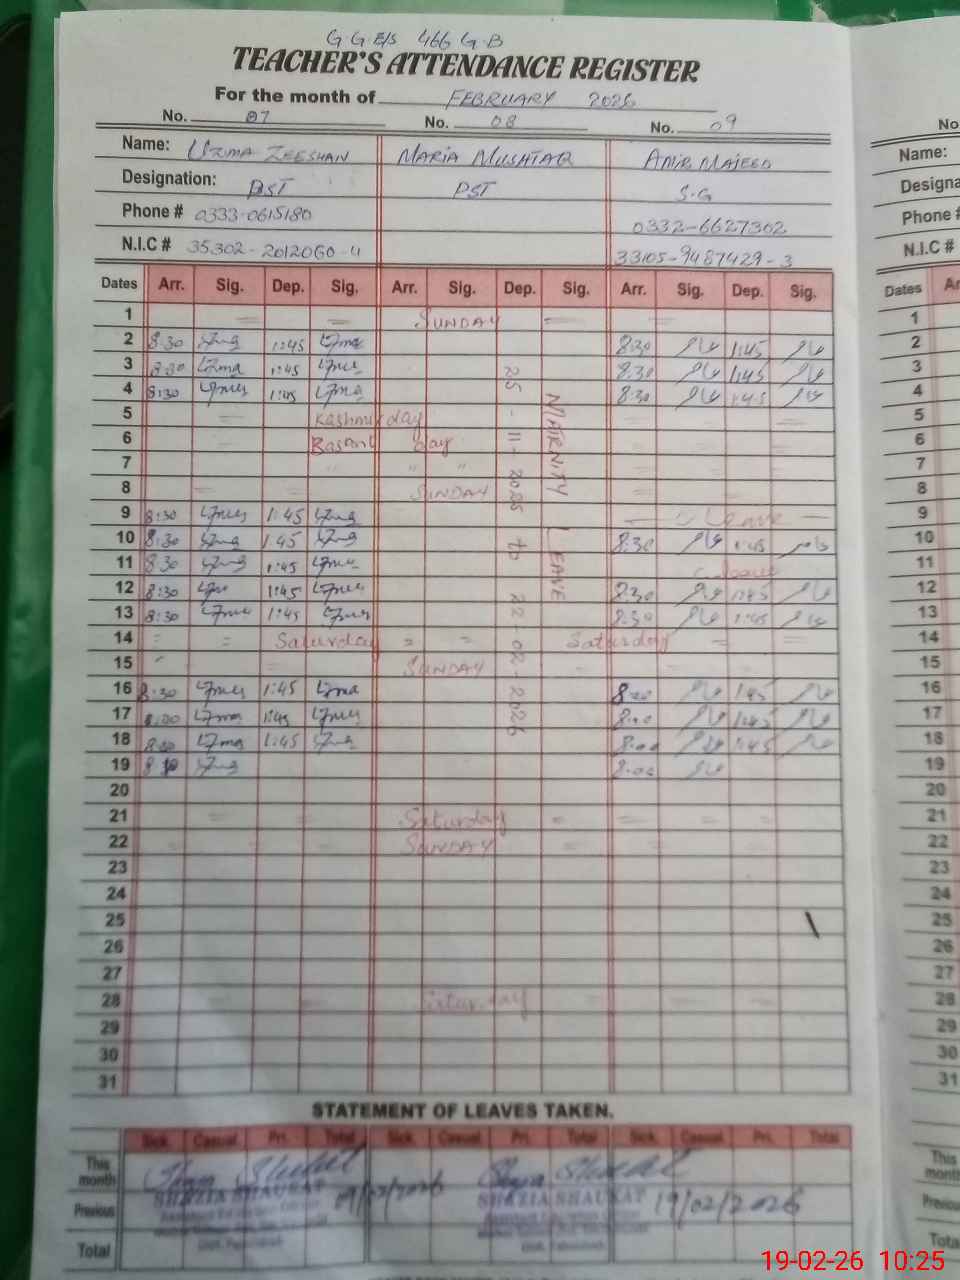 G.G.E/S 466 G.B
TEACHER'S ATTENDANCE REGISTER
For the month of FEBRUARY 2026
No. 07 No. 08 No. 09
Name: UZMA ZEESHAN MARIA MUSHTAQ AMIR MAJEED
Designation: PST PST S.G
Phone # 0333-0615180 0332-6627302
N.I.C # 35302-2012060-4 33105-9487429-3
Dates Arr. Sig. Dep. Sig. Arr. Sig. Dep. Sig. Arr. Sig. Dep. Sig.
1 SUNDAY
2 8:30 1:45 8:30 1:45
3 8:30 1:45 8:30 1:45
4 8:30 1:45 8:30 1:45
5 Kashmir day
6 Basant day
7 " " "
8 SUNDAY
9 8:30 1:45 Leave
10 8:30 1:45 8:30 1:45
11 8:30 1:45 leave
12 8:30 1:45 8:30 1:45
13 8:30 1:45 8:30 1:45
14 Saturday Saturday
15 SUNDAY
16 8:30 1:45 1:45
17 1:45 1:45
18 1:45 8:00 1:45
19 8:00
20
21 Saturday
22 SUNDAY
23
24
25
26
27
28 Saturday
29
30
31
25-11-2025 to 22-02-2026
LEAVE
STATEMENT OF LEAVES TAKEN.
Sick. Casual. Pri. Total Sick. Casual. Pri. Total Sick. Casual. Pri. Total
This month
Previous
Total
SHAZIA SHAUKAT 19/02/2026 SHAZIA SHAUKAT 19/02/2026
No
Name:
Designa
Phone #
N.I.C #
Dates Ar
1
2
3
4
5
6
7
8
9
10
11
12
13
14
15
16
17
18
19
20
21
22
23
24
25
26
27
28
29
30
31
This month
Previous
Total
19-02-26 10:25